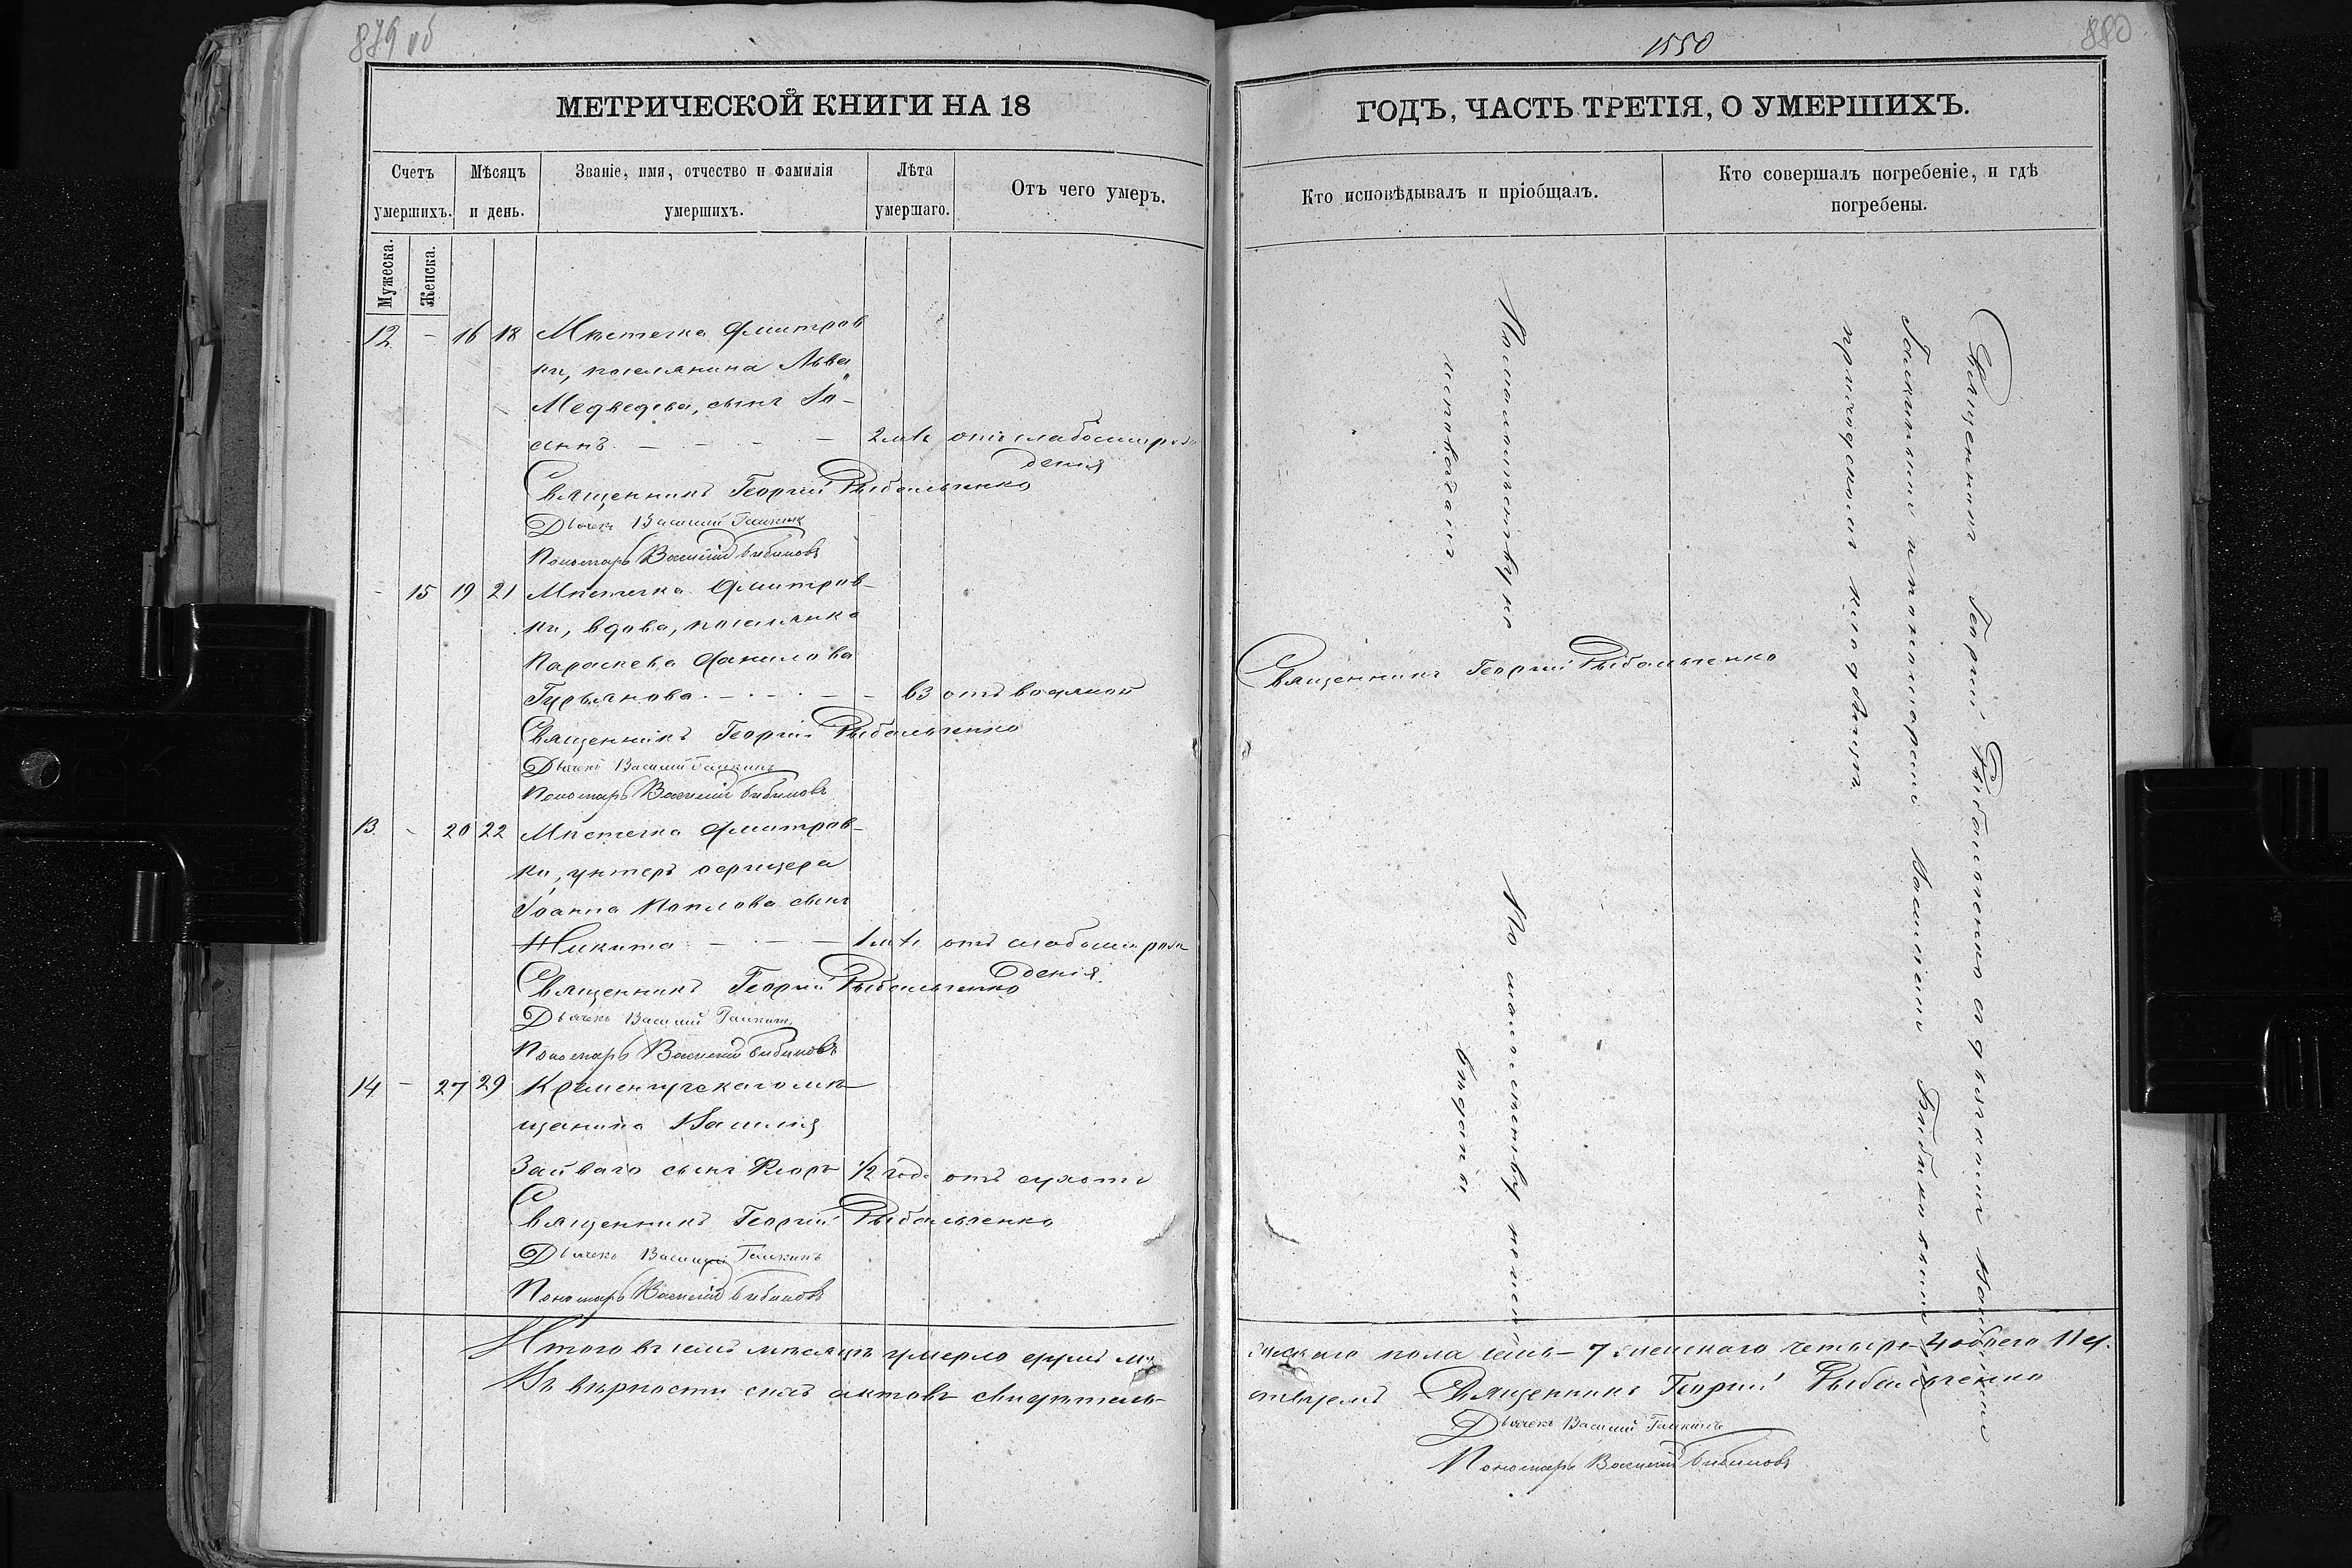 879 об
МЕТРИЧЕСКОЙ КНИГИ НА 18
Счетъ умершихъ.
Мужеска.
Женска.
Мѣсяцъ и день.
Званіе, имя, отчество и фамилія умершихъ.
Лѣта умершаго.
Отъ чего умеръ.
12 - 16 18 Мѣстечка Дмитров
ки, поселянина Льва
Медведева, сынъ Іо-
аннъ 2 отъ слабости рож
денія
Священникъ Георгій Рыбальченко
Дьячекъ Василий Галкинъ
Пономарь Василій Бибиковъ
- 15 19 21 Мѣстечка Дмитров-
ки, вдова, поселянка
Параскева Данилова
Гурьянова 63 отъ водяной
Священникъ Георгій Рыбальченко
Дьячекъ Василий Галкинъ
Пономарь Василій Бибиковъ
13 - 20 22 Мѣстечка Дмитров-
ки, унтеръ офицера
Іоанна сынъ
Никита 1 отъ слабости рож
денія
Священникъ Георгій Рыбальченко
Дьячекъ Василий Галкинъ
Пономарь Василій Бибиковъ
14 - 27 29 Кременчугскаго мѣ
щанина Василія
сынъ 1/2 года отъ сухоти
Священникъ Георгій Рыбальченко
Дьячекъ Василий Галкинъ
Пономарь Василій Бибиковъ
Итого въ семъ мѣсяцѣ умерло душъ му
Въ вѣрности сихъ актовъ свидѣтель-
1550
880
ГОДЪ, ЧАСТЬ ТРЕТІЯ, О УМЕРШИХЪ.
Кто исповѣдывалъ и пріобщалъ.
Кто совершалъ погребеніе, и гдѣ
погребены.
По малолетству не
исповѣдан
Священникъ Георгій Рыбальченко
По малолетству неиспо
вѣданы
Священникъ Георгій Рыбальченко съ дьячкомъ Василіемъ
Галкинымъ и пономаремъ Василіемъ Бибиковымъ на
приходскомъ кладбищѣ
жескаго пола семь - 7 женскаго четыре - 4 обоего 11 ч.
ствуемъ Священникъ Георгій Рыбальченко
Дьячекъ Василий Галкинъ
Пономарь Василій Бибиковъ